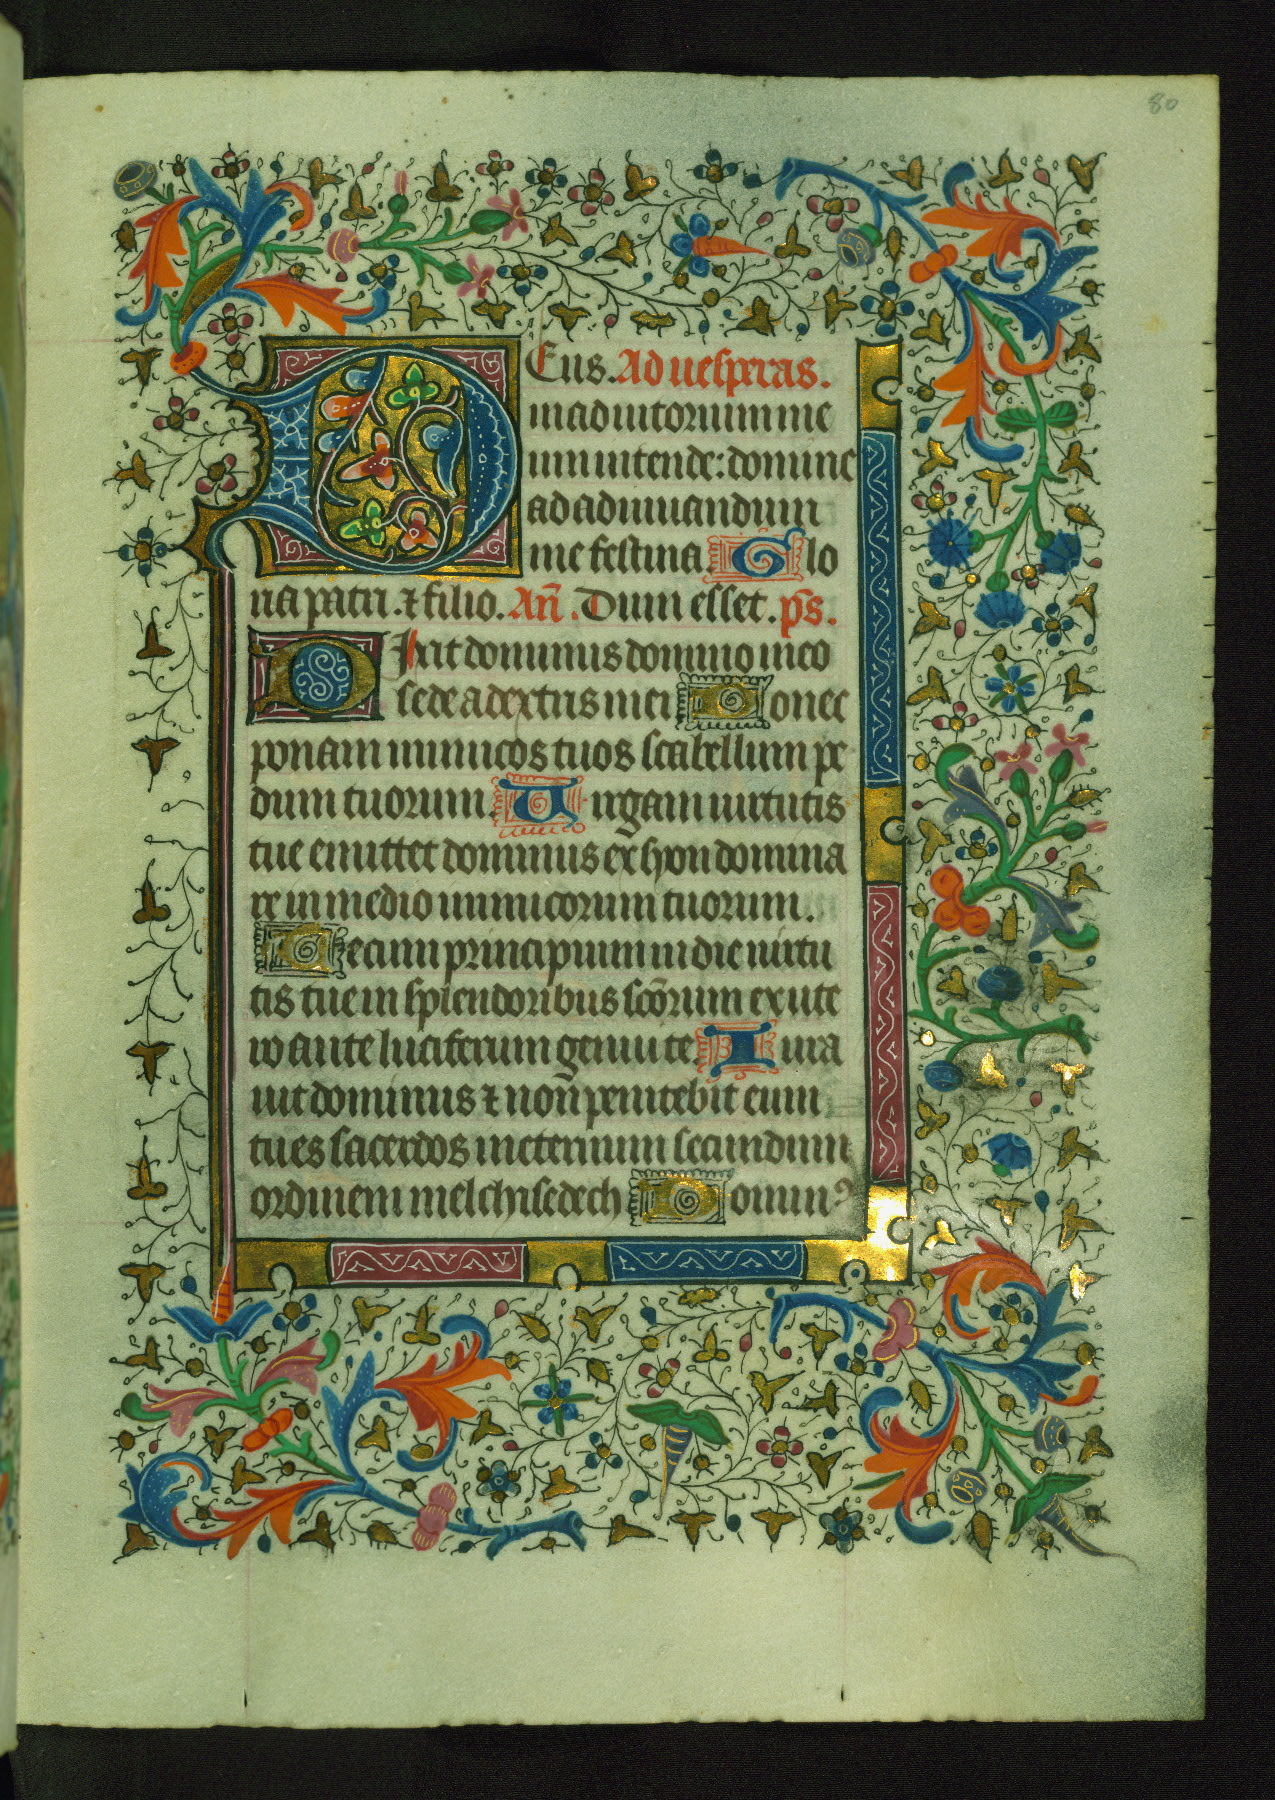 80
DEus. Ad uesperas.
in adiutorium me
um intende: domine
ad adiuuandum
me festina. Glo
ria patri. ⁊ filio. An̄. Dum esset. ps.
Dixit dominus domino meo
sede a dextris meis Donec
ponam inimicos tuos scabellum pe
dum tuorum Uirgam uirtutis
tue emittet dominus ex syon domina
re in medio inimicorum tuorum.
Tecum principium in die uirtu
tis tue in splendoribus sc̄orum ex ute
ro ante luciferum genui te. Iura
uit dominus ⁊ non penitebit eum
tu es sacerdos in eternum secundum
ordinem melchisedech Domin9